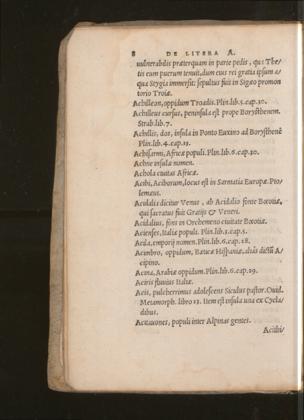 8 DE LITERA A.
vulnerabilis præterquam in parte pedis, qua The-
tis eum puerum tenuit, dum eius rei gratia ipsum a-
qua Stygia immersit: sepultus fuit in Sigæo promon
torio Troiæ.
Achillean, oppidum Troadis. Plin.lib.5.cap.30.
Achilleus cursus, peninsula est prope Borysthenem.
Strab.lib.7.
Achillis, dos, insula in Ponto Euxino ad Borysthenē
Plin.lib.4.cap.13.
Achisarmi, Africæ populi. Plin.lib.6.cap.30.
Achne insulæ nomen.
Achola ciuitas Africæ.
Acibi, Aciborum, locus est in Sarmatia Europæ. Pto-
lemæus.
Acidalis dicitur Venus, ab Acidalio fonte Bœotiæ,
qui sacratus fuit Gratijs & Veneri.
Acidalius, fons in Orchomeno ciuitate Bœotiæ.
Acienses, Italiæ populi. Plin.lib.3.cap.5.
Acila, emporij nomen. Plin.lib.6.cap.28.
Acimbro, oppidum, Bæticæ Hispaniæ, aliàs dictū A-
cipino.
Acina, Arabiæ oppidum. Plin.lib.6.cap.29.
Aciris fluuius Italiæ.
Acis, pulcherrimus adolescens Siculus pastor. Ouid.
Metamorph. libro 13. Item est insula una ex Cycla-
dibus.
Acitauones, populi inter Alpinas gentes.